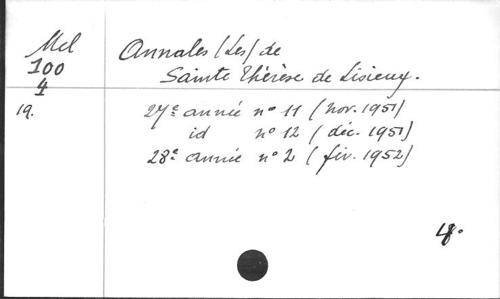 Mel
100
4
19.
Annales (Les) de
Sainte Thérèse de Lisieux.
27e année n° 11 (nov. 1951)
id n° 12 (déc. 1951)
28e année n° 2 (fév. 1952)